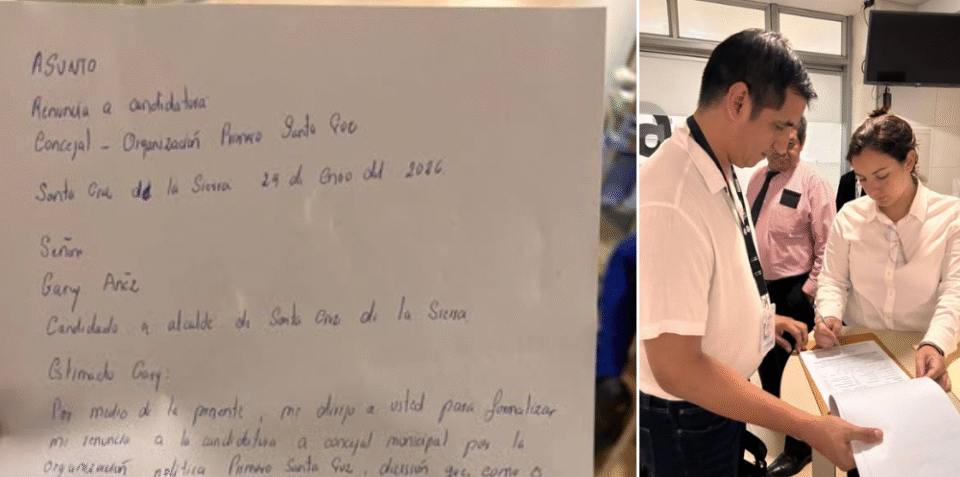 ASUNTO
Renuncia a candidatura
Concejal - Organización Primero Santa Cruz
Santa Cruz de la Sierra 29 de Enero del 2026.
Señor
Gary Añez
Candidado a alcalde de Santa Cruz de la Sierra
Estimado Gary:
Por medio de la presente, me dirijo a usted para formalizar
mi renuncia a la candidatura a concejal municipal por la
Organización política Primero Santa Cruz, decisión que, como